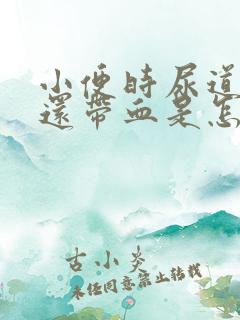 小便時尿道
還帶血是怎
古小炎
未经同意禁止转载